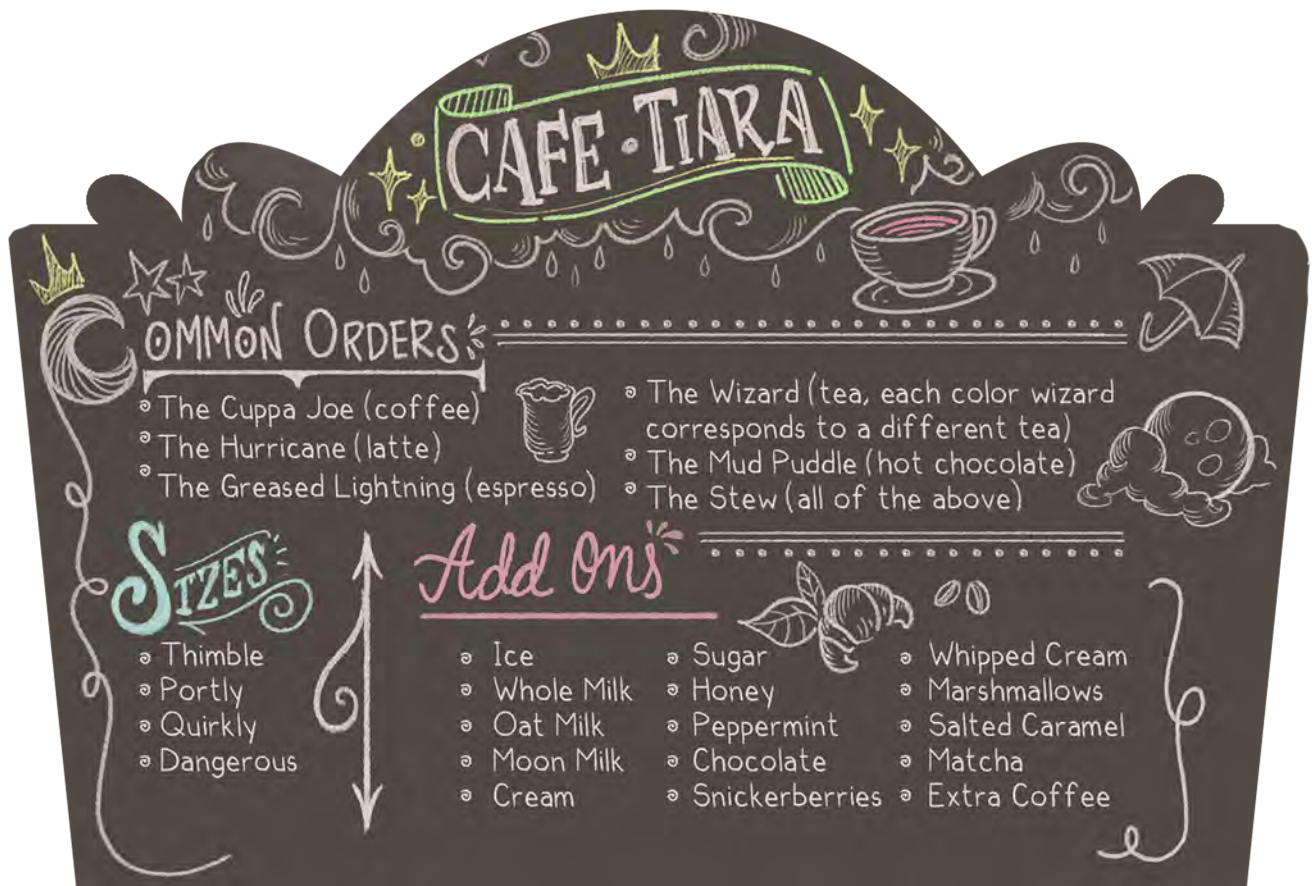 CAFE • TIARA
COMMON ORDERS
The Cuppa Joe (coffee)
The Hurricane (latte)
The Greased Lightning (espresso)
The Wizard (tea, each color wizard
corresponds to a different tea)
The Mud Puddle (hot chocolate)
The Stew (all of the above)
SIZES
Thimble
Portly
Quirkly
Dangerous
Add Ons
Ice
Whole Milk
Oat Milk
Moon Milk
Cream
Sugar
Honey
Peppermint
Chocolate
Snickerberries
Whipped Cream
Marshmallows
Salted Caramel
Matcha
Extra Coffee